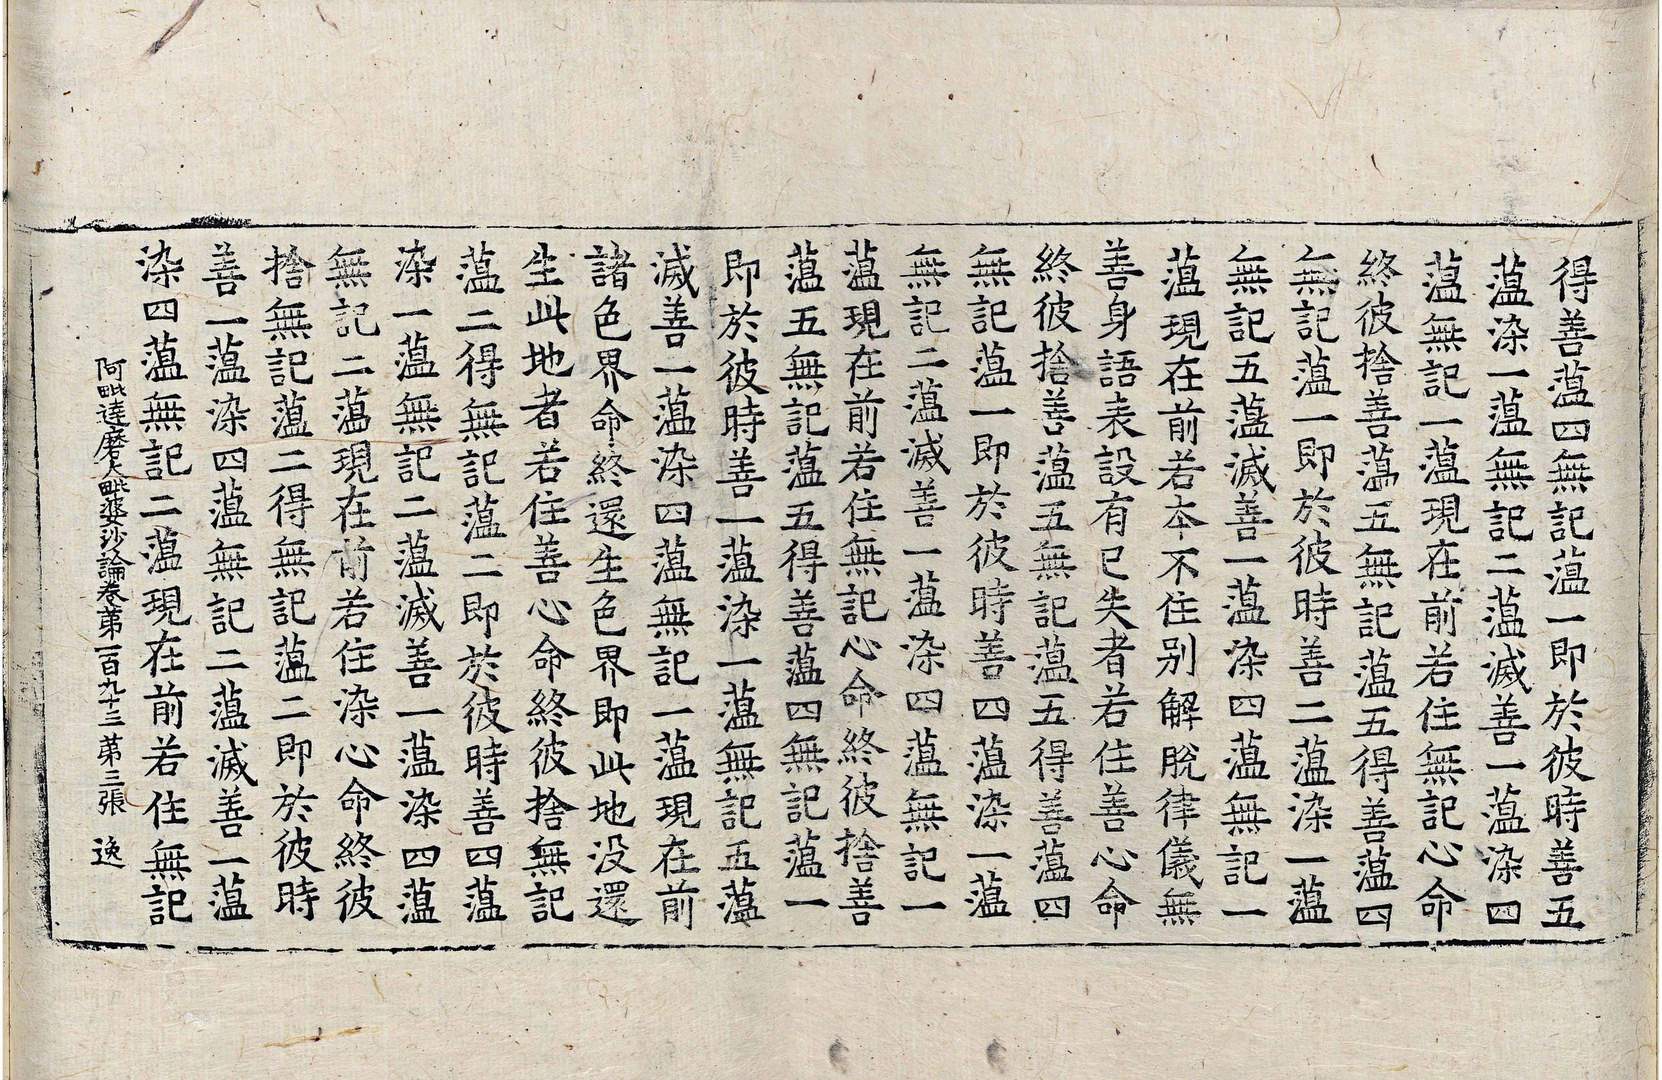 得善薀四無記薀一即於彼時善五
薀染一薀無記二薀滅善一薀染四
薀無記一薀現在前若住無記心命
終彼捨善薀五無記薀五得善薀四
無記薀一即於彼時善二薀染一薀
無記五薀滅善一薀染四薀無記一
薀現在前若本不住別解脫律儀無
善身語表設有已失者若住善心命
終彼捨善薀五無記薀五得善薀四
無記薀一即於彼時善四薀染一薀
無記二薀滅善一薀染四薀無記一
薀現在前若住無記心命終彼捨善
薀五無記薀五得善薀四無記薀一
即於彼時善一薀染一薀無記五薀
滅善一薀染四薀無記一薀現在前
諸色界命終還生色界即此地没還
生此地者若住善心命終彼捨無記
薀二得無記薀二即於彼時善四薀
染一薀無記二薀滅善一薀染四薀
無記二薀現在前若住染心命終彼
捨無記薀二得無記薀二即於彼時
善一薀染四薀無記二薀滅善一薀
染四薀無記二薀現在前若住無記
阿毗達磨大毗婆沙論卷第一百九十三 第三張 逸